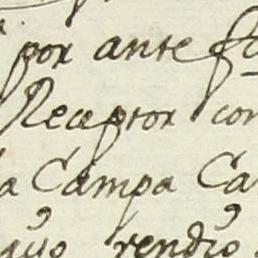 por ante
Receptor con
a Campa Ca
rendio